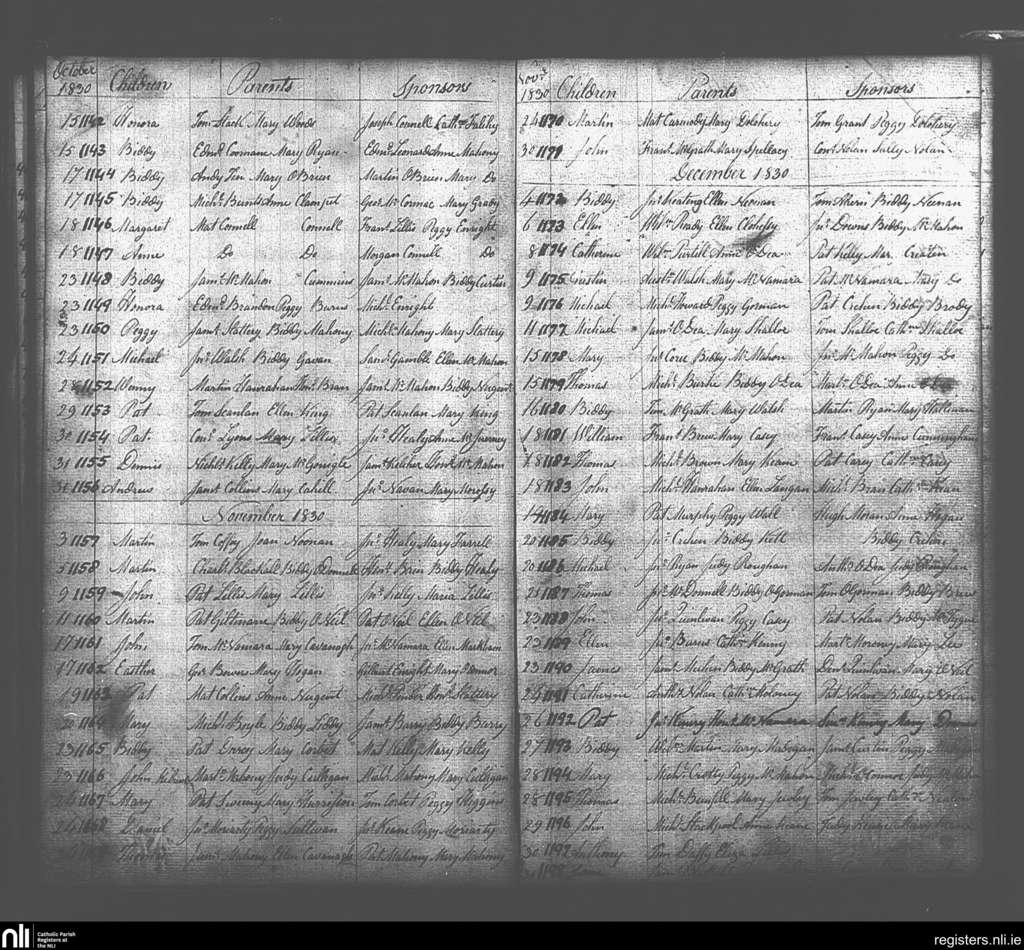 October
1830 Children Parents Sponsors
15 1142 Honora Tom Stack Mary Woods Joseph Connell Cathne
15 1143 Biddy Edmd Coonane Mary Ryan Edmd Leonard Anne Mahony
17 1144 Biddy Andy Tin Mary O'Brien Martin O'Brien Mary Do
17 1145 Biddy Michl Anne Geoe McCormac Mary Grady
18 1146 Margaret Mat Connell Connell Frans Lillis Peggy Enright
18 1147 Anne Do Do Morgan Connell Do
23 1148 Biddy James McMahon Cummins James McMahon Biddy Curtin
23 1149 Honora Edmd Brandon Peggy Burns Michl Enright
23 1150 Peggy James Slattery Biddy Mahony Michl Mahony Mary Slattery
24 1151 Michael Jno Walsh Biddy Gavan Gamble Ellen McMahon
1152 Winny Martin Hanrahan James McMahon Biddy Nugent
29 1153 Pat Tom Scanlan Ellen King Pat Scanlan Mary King
30 1154 Pat Cons Lyons Mary Lillis Jno Healy Anne McInerney
31 1155 Dennis Nichls Kelly Mary McGonigle James Kelcher McMahon
31 1156 Andrew James Collins Mary Cahill Jno Navan Mary
November 1830
3 1157 Martin Tom Coffey Joan Noonan Jno Healy Mary Farrell
5 1158 Martin Charls Blackall Biddy O'Donnell Brien Biddy Healy
9 1159 John Pat Lillis Mary Lillis Jno Kelly Maria Lillis
11 1160 Martin Pat Biddy O'Neil Pat O'Neil Ellen O'Neil
17 1161 John Tom McNamara Mary Cavanagh Jno McNamara Ellen
17 1162 Easther Geo Bowers Mary Hogan Gilbert Enright Mary O'Connor
19 1163 Pat Mat Collens Anne Nugent Slattery
22 1164 Mary Michl Boyle Biddy Liddy James Barry Biddy Barry
23 1165 Biddy Pat Mary Corbet Mat Kelly Mary Kelly
23 1166 John Mart Mahony Judy Culligan Michl Mahony Mary Culligan
24 1167 Mary Pat Sweeny Mary Harrison Tom Corbet Peggy Higgins
24 1168 Daniel Jno Moriarty Peggy Sullivan Jno Keane Peggy Moriarty
Thomas James Mahony Ellen Cavanagh Pat Mahony Mary Mahony
Novr
1830 Children Parents Sponsors
24 1170 Martin Mat Carmody Mary Tom Grant Peggy
30 1171 John Frans McGrath Mary Spellacy Cons Nolan Nolan
December 1830
4 1172 Biddy Jno Keating Ellen Neenan Tom Ahern Biddy Neenan
6 1173 Ellen Wm Ready Ellen Clohessy Jno Downs Biddy McMahon
8 1174 Catherine Wm Purtell Anne O'Dea Pat Kelly Mar.
9 1175 Austin Walsh Mary McNamara Pat McNamara Mary Do
9 1176 Michael Michl Howard Peggy Gorman Pat Crehen Biddy Brody
11 1177 Michael James O'Dea Mary Shalloe Tom Shalloe Cathne Shalloe
15 1178 Mary Jno Biddy McMahon Jno McMahon Peggy Do
15 1179 Thomas Michl Burke Biddy O'Dea Mart O'Dea Anne O'Dea
16 1180 Biddy Tim McGrath Mary Walsh Martin Ryan Mary
18 1181 William Frans Brew Mary Casey Frans Casey Anne Cunningham
18 1182 Thomas Michl Brown Mary Keane Pat Carey Cathne Carey
18 1183 John Michl Hanrahan Ellen Langan Michl Cathne
19 1184 Mary Pat Murphy Peggy Wall Hugh Moran Anne Hogan
20 1185 Biddy Jno Crehen Biddy Kett Biddy Crehen
20 1186 Michael Jno Ryan Judy Roughan O'Dea Judy
21 1187 Thomas Jno McDonnell Biddy O'Gorman Tom O'Gorman Biddy Brew
23 1188 John Jno Quinlivan Peggy Casey Pat Nolan Biddy
23 1189 Ellen Jno Burns Cathne Kenny Mart Moroney Mary Lee
23 1190 James James Meehen Biddy McGrath Quinlivan Mary O'Neil
24 1191 Catherine Nolan Cathne Moloney Pat Nolan Biddy Nolan
26 1192 Pat Jno Kenry McNamara Kenry Mary
27 1193 Biddy Wm Martin Mary James Curtin Peggy
28 1194 Mary Michl Crotty Peggy McMahon O'Connor Judy
28 1195 Thomas Michl Mary Tom Cathne
29 1196 John Michl Stackpool Anne Keane Judy Keane Mary Keane
30 1197 Anthony Tim Daffy Eliza
1198
nli
Catholic Parish
Registers at
the NLI
registers.nli.ie